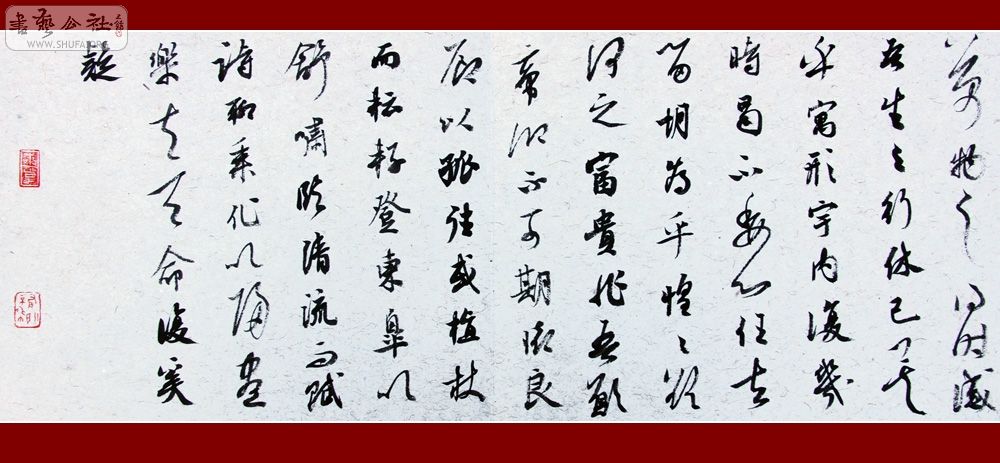 萬物之得時感
吾生之行休已矣
乎寓形宇内復幾
時曷不委心任去
留胡為乎惶々欲
何之富貴非吾願
帝鄉不可期懷良
辰以孤往或植杖
而耘耔登東皋以
舒嘯臨清流而賦
詩聊乘化以歸盡
樂夫天命復奚
疑
書藝公社